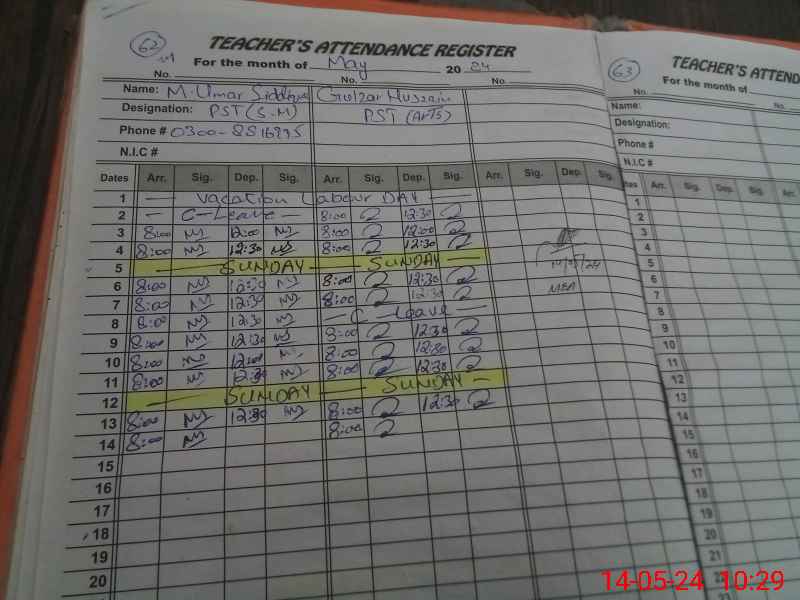 62
TEACHER'S ATTENDANCE REGISTER
For the month of May 20 24
No. No.
Name: M. Umar Siddique Gulzar Hussain
Designation: PST (S.M) PST (Arts)
Phone #
N.I.C #
Dates Arr. Sig. Dep. Sig. Arr. Sig. Dep. Sig. Arr. Sig. Dep. Sig.
1 Vacation Labour DAY
2 C-Leave 8:00 12:30
3 8:00 12:00 8:00 12:00
4 8:00 12:30 8:00 12:30
5 SUNDAY SUNDAY
6 8:00 12:30 8:00 12:30
7 8:00 12:30 8:00 12:30
8 8:00 12:30 C-Leave
9 8:00 12:30 8:00 12:30
10 8:00 12:00 8:00 12:30
11 8:00 12:30 8:00 12:30
12 SUNDAY SUNDAY
13 8:00 12:30 8:00 12:30
14 8:00 8:00
15
16
17
18
19
20
14/05/24
MEA
63
TEACHER'S ATTEND
For the month of
No. No.
Name:
Designation:
Phone #
N.I.C #
tes Arr. Sig. Dep. Sig. Arr.
1
2
3
4
5
6
7
8
9
10
11
12
13
14
15
16
17
18
19
20
21
22
23
14-05-24 10:29